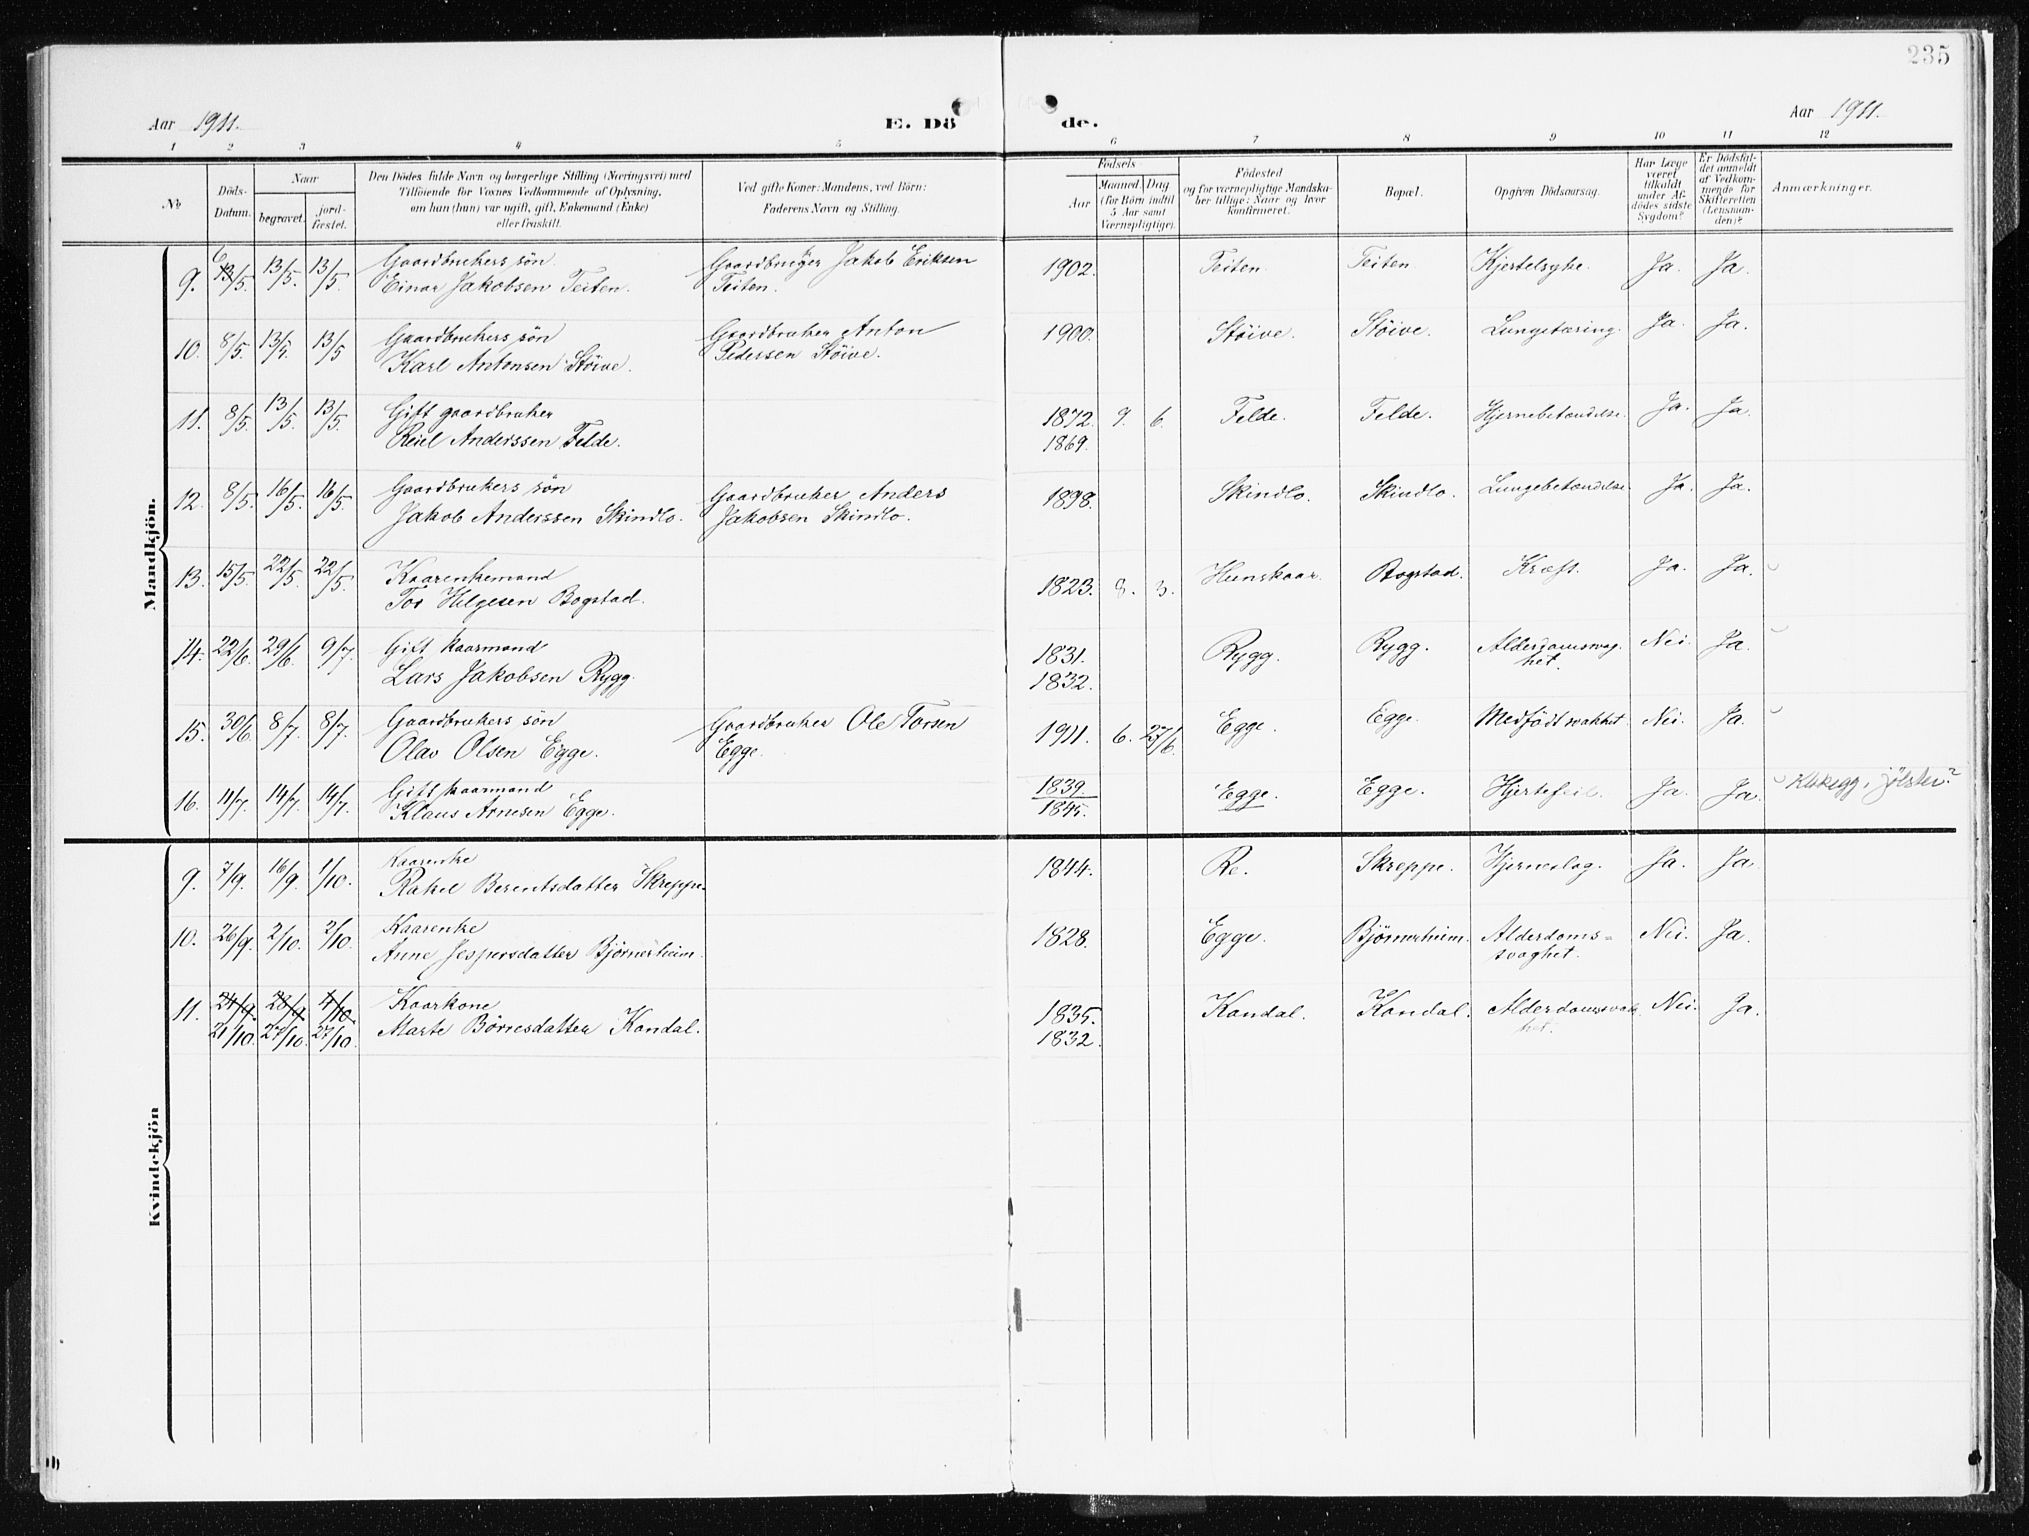 235
Aar 1911.
E. Dö de.
Aar 1911.
1 2 3 4 5 6 7 8 9 10 11 12
No
Döds-Datum.
Naar
begravet.
jord-fæstet.
Den Dödes fulde Navn og borgerlige Stilling (Næringsvei) med
Tilföiende for Voxnes Vedkommende af Oplysning,
om han (hun) var ugift, gift, Enkemand (Enke)
eller fraskilt.
Ved gifte Koner: Mandens, ved Börn:
Faderens Navn og Stilling.
Födsels
Aar
Maaned. Dag
(for Börn indtil
5 Aar samt
Værnepligtige).
Födested
og for værnepligtige Mandska-
ber tillige: Naar og hvor
konfirmeret.
Bopæl.
Opgiven Dödsaarsag.
Har Læge
været
tilkaldt
under Af-
dödes sidste
Sygdom?
Er Dödsfal-
det anmeldt
af Vedkom-
mende for
Skifteretten
(Lensman-
den)?
Anmærkninger.
Mandkjön.
9. 6 13/5. 13/5. 13/5. Gaardbrukers sön Gaardbruger Jakob Eriksen 1902. Teiten. Teiten. Kjertelsyke. Ja. Ja.
Einar Jakobsen Teiten. Teiten.
10. 8/5. 13/5. 13/5 Gaardbrukers sön Gaardbruker Anton 1900. Stöive. Stöive. Lungetæring. Ja. Ja.
Karl Antonsen Stöive. Pedersen Stöive.
11. 8/5. 13/5. 13/5. Gift gaardbruker 1872. 9. 6. Felde. Felde. Hjernebetændelse. Ja. Ja.
Reiel Anderssen Felde. 1869.
12. 8/5. 16/5. 16/5. Gaardbrukers sön Gaardbruker Anders 1898. Skindlo. Skindlo. Lungebetændelse. Ja. Ja.
Jakob Anderssen Skindlo. Jakobsen Skindlo.
13. 15/5. 22/5. 22/5. Kaarenkemand 1823. 8. 3. Hunskaar. Bogstad. Kræft. Ja. Ja.
Tor Helgesen Bogstad.
14. 22/6. 29/6. 9/7. Gift kaarmand 1831. Rygg. Rygg. Alderdomsvag- Nei. Ja.
Lars Jakobsen Rygg. 1832. het.
15. 30/6. 8/7. 8/7. Gaardbrukers sön Gaardbruker Ole Torsen 1911. 6. 27/6. Egge. Egge. Medfödt svakhet. Nei. Ja.
Olav Olsen Egge. Egge.
16. 4/7. 14/7. 14/7. Gift kaarmand 1839. Egge. Egge. Hjertefeil. Ja. Ja. Klakegg i Jölster?
Klaus Arnesen Egge. 1845.
Kvindekjön
9. 7/9. 16/9. 1/10. Kaarenke 1844. Re. Skreppe. Hjerneslag. Ja. Ja.
Rakel Berentsdatter Skreppe.
10. 26/9. 2/10. 2/10. Kaarenke 1828. Egge. Bjørnerheim. Alderdoms= Nei. Ja.
Anne Jespersdatter Bjørnerheim. svaghet.
11. 24/9. 28/9. 4/10. Kaarkone 1835. Kandal. Kandal. Alderdomssvak Nei. Ja.
21/10. 27/10. 27/10. Marte Börresdatter Kandal. 1832. het.